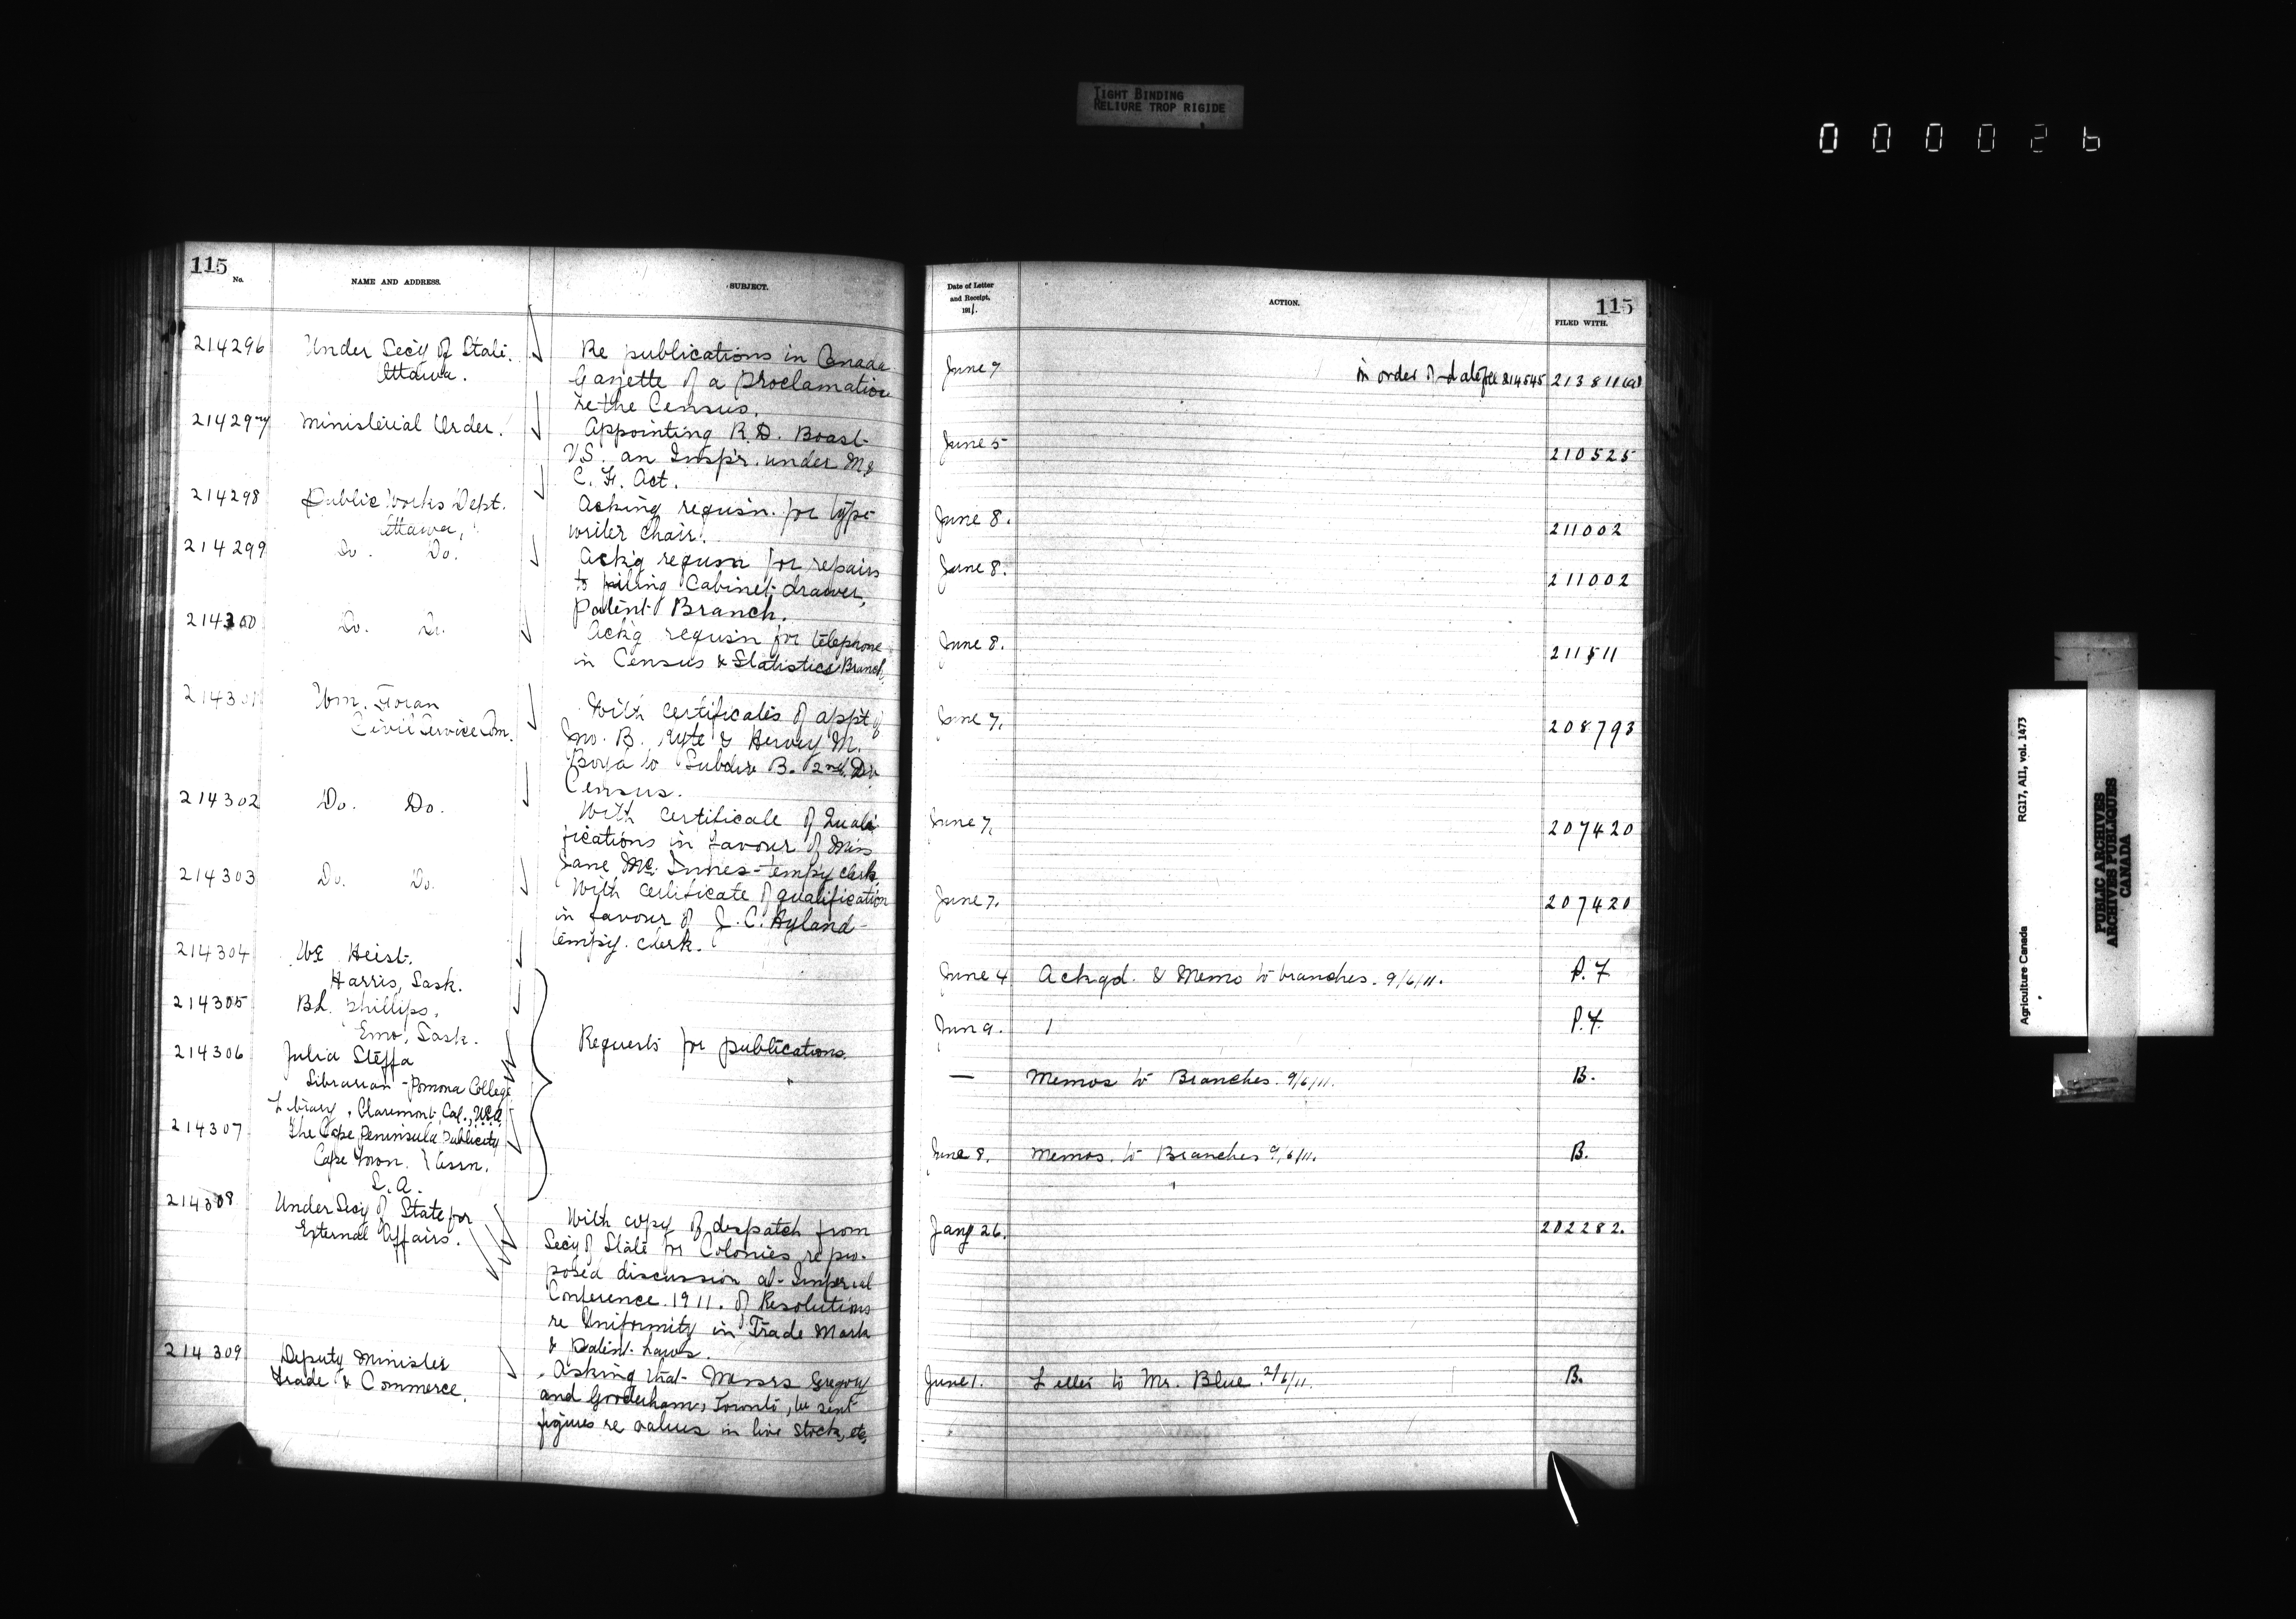 TIGHT BINDING
RELIURE TROP RIGIDE
000026
115
No.
NAME AND ADDRESS.
SUBJECT.
214296 Under Secy of State. Re publications in Canada
Ottawa. Gazette of a Proclamation
re the Census.
214297 Ministerial Order. Appointing R.D. Boast
V.S. an Inspr. under M &
C. F. Act.
214298 Public Works Dept. Acking requisn. for type
Ottawa, writer chair.
214299 Do. Do. Ack'g requisn for repairs
to filing Cabinet drawer,
Patent Branch.
214300 Do. Do. Ack'g requisn for telephone
in Census & Statistics Branch.
214301 Wm. Foran With certificates of appt of
Civil Service Com. Jno. B. & Hervey M.
to Subdiv B. 2nd. Div
Census.
214302 Do. Do. With certificate of Quali
fications in favour of Miss
Jane Mc. Innes - tempy clerk.
214303 Do. Do. With certificate of qualification
in favour of J. C. Hyland
tempy. clerk.
214304 WE Heist.
Harris, Sask.
214305 B.L. Phillips.
Emo, Sask.
Requests for publications.
214306 Julia Steffa
Librarian - Pomona College
Library, Claremont, Cal., USA
214307 The Cape Peninsula Publicity
Cape Town. Assn.
S.A.
214308 Under Secy of State for With copy of despatch from
External Affairs. Secy of State for Colonies re pro-
posed discussion at Imperial
Conference 1911. of Resolutions
re Uniformity in Trade Mark
& Patent Laws.
214309 Deputy Minister Asking that Messrs Gregory
Trade & Commerce. and Gooderham, Toronto, be sent
figures re values in live stock, etc,
Date of Letter
and Receipt,
1911.
ACTION.
115
FILED WITH.
June 7 in order of date see 214545 213811
June 5 210525
June 8. 211002
June 8. 211002
June 8. 211511
June 7. 208793
June 7. 207420
June 7. 207420
June 4 Ackgd. & Memo to branches. 9/6/11. P.F
Jun 9. P.F.
— Memos to Branches. 9/6/11. B.
June 8. Memos. to Branches 9/6/11. B.
Jany 26. 202282.
June 1. Letter to Mr. Blue. 2/6/11. B.
Agriculture Canada RG17, AII, vol. 1473
PUBLIC ARCHIVES
ARCHIVES PUBLIQUES
CANADA